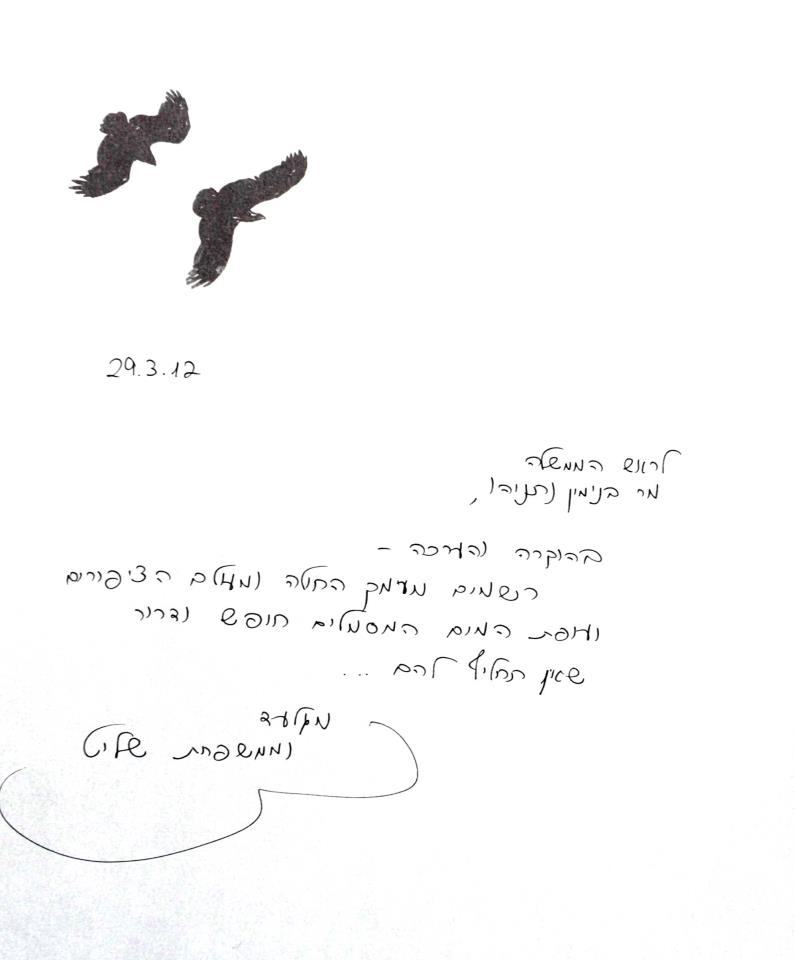 29.3.12
לראש הממשלה
מר בנימין נתניהו,
בהוקרה והערכה –
רשמים מעמק החולה ומעולם הציפורים
ועופת המים המסמלים חופש ודרור
שאין תחליף להם ...
מגלעד
וממשפחת שליט